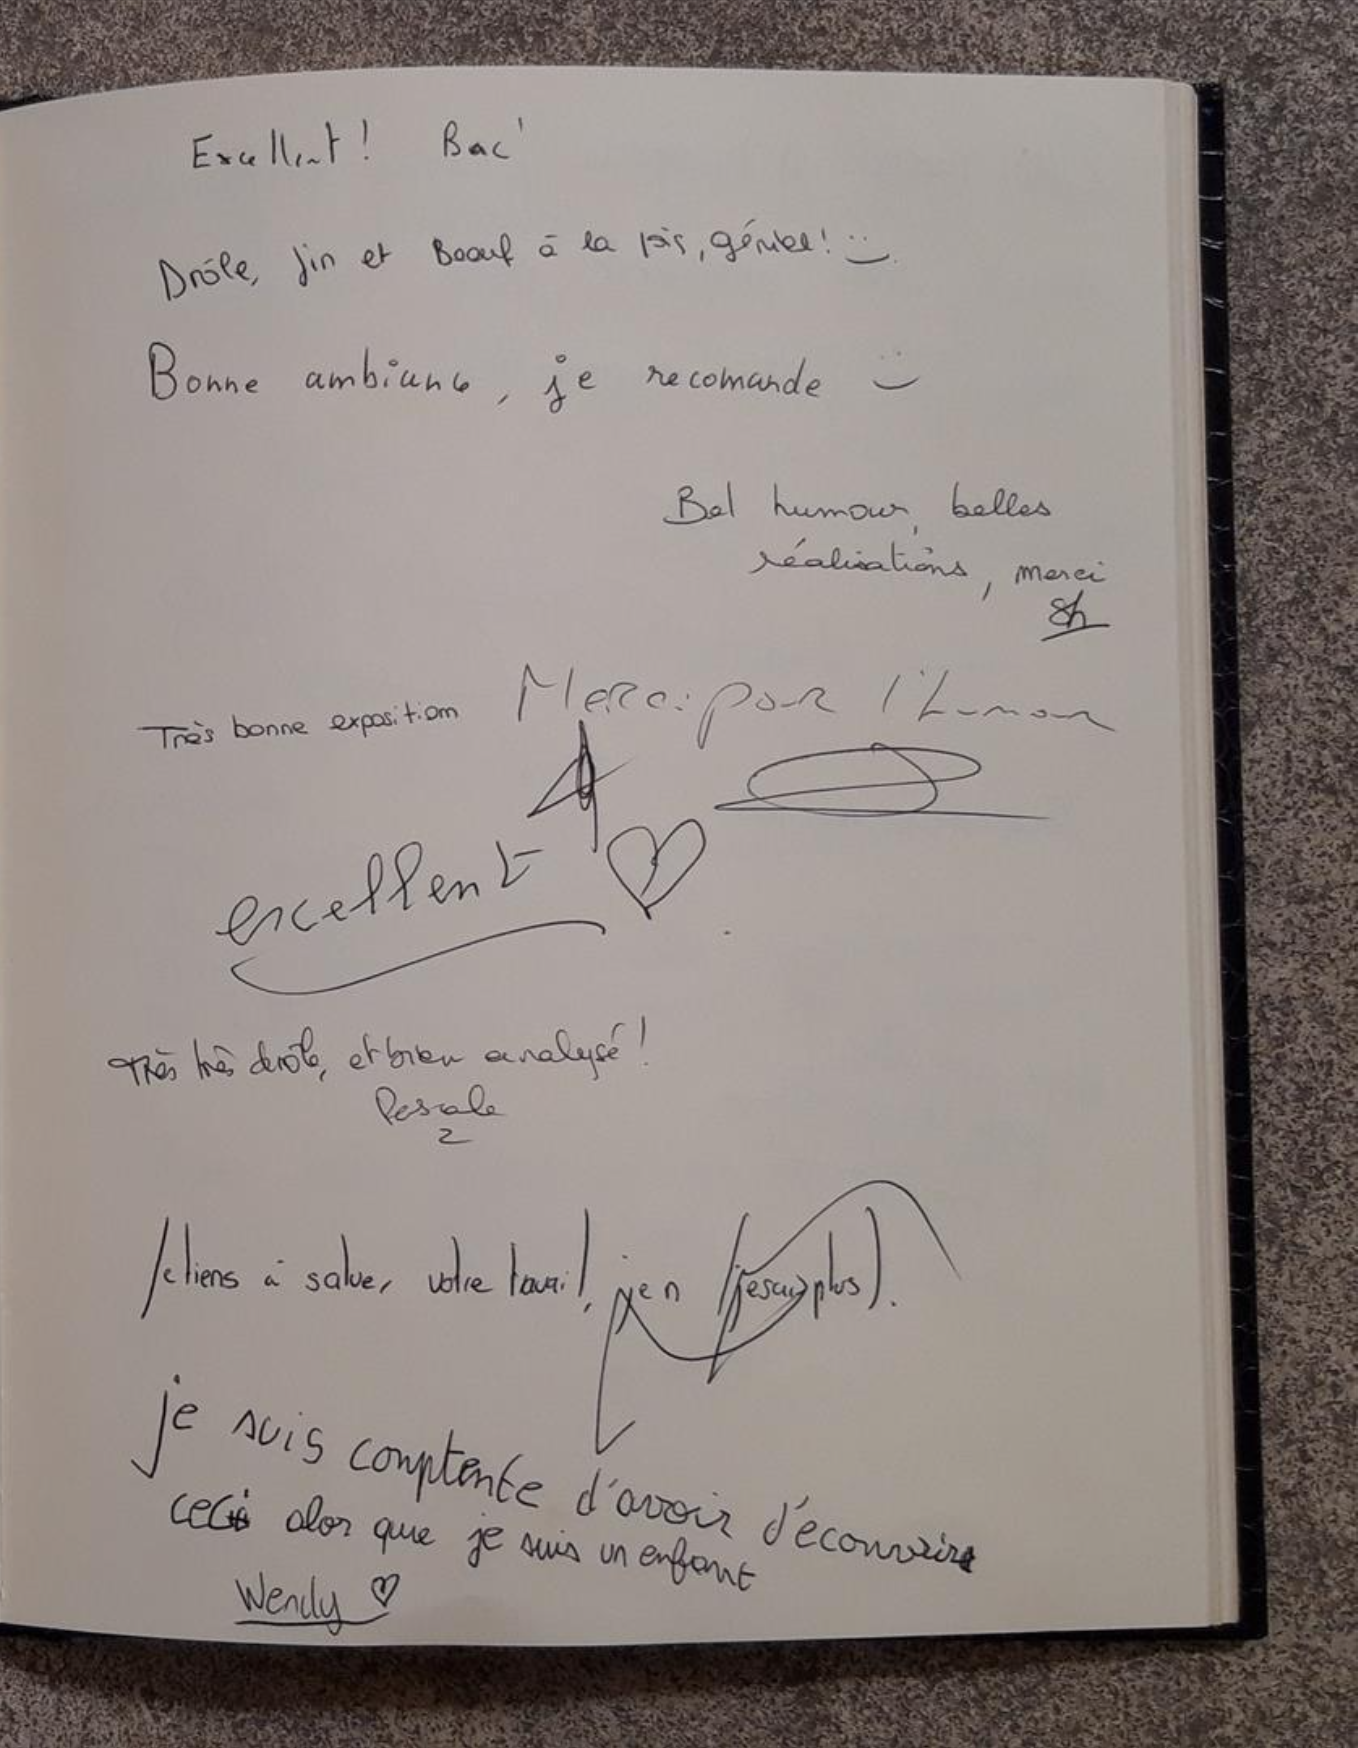 Excellent! Bac'
Drôle, fin et Boeuf à la fois, génial! :)
Bonne ambiance, je recomande :)
Bel humour, belles
réalisations, merci
Très bonne exposition
Merci pour l'humour
excellent ♡
Très très drôle, et bien analysé!
Pascale
Je tiens à saluer votre travail, (jesaisplus).
je suis comptente d'avoir d'écouvrire
ceci alor que je suis un enfant
Wendy ♡